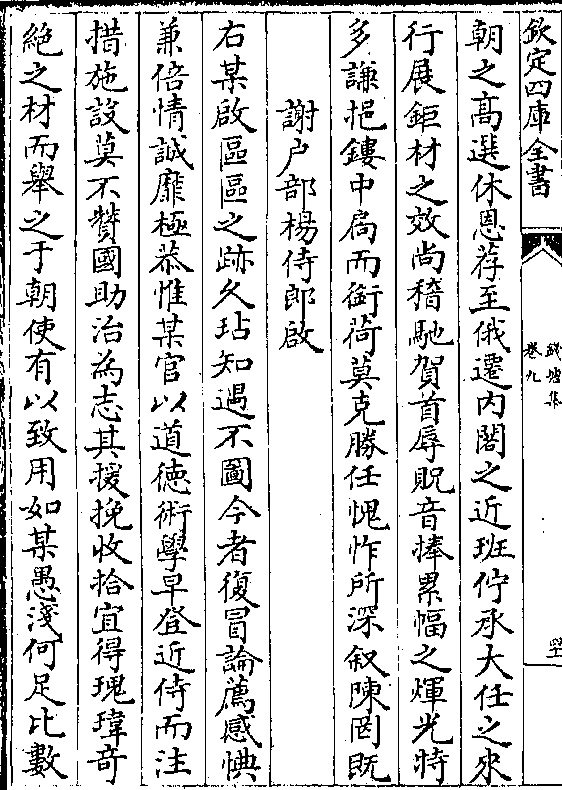 欽定四庫全書
錢塘集
卷九
朝之高選休恩荐至俄遷内閣之近班佇承大任之來
行展鉅材之效尚稽馳賀首辱貺音捧累幅之煇光特
多謙挹鏤中扄而銜荷莫克勝任愧怍所深叙陳罔既
謝户部楊侍郎啟
右某啟區區之跡久玷知遇不圖今者復冒論薦感惧
兼倍情誠靡極恭惟某官以道德術學早登近侍而注
措施設莫不贊國助治為志其援挽收拾宜得瑰瑋竒
絶之材而舉之于朝使有以致用如某愚淺何足比數